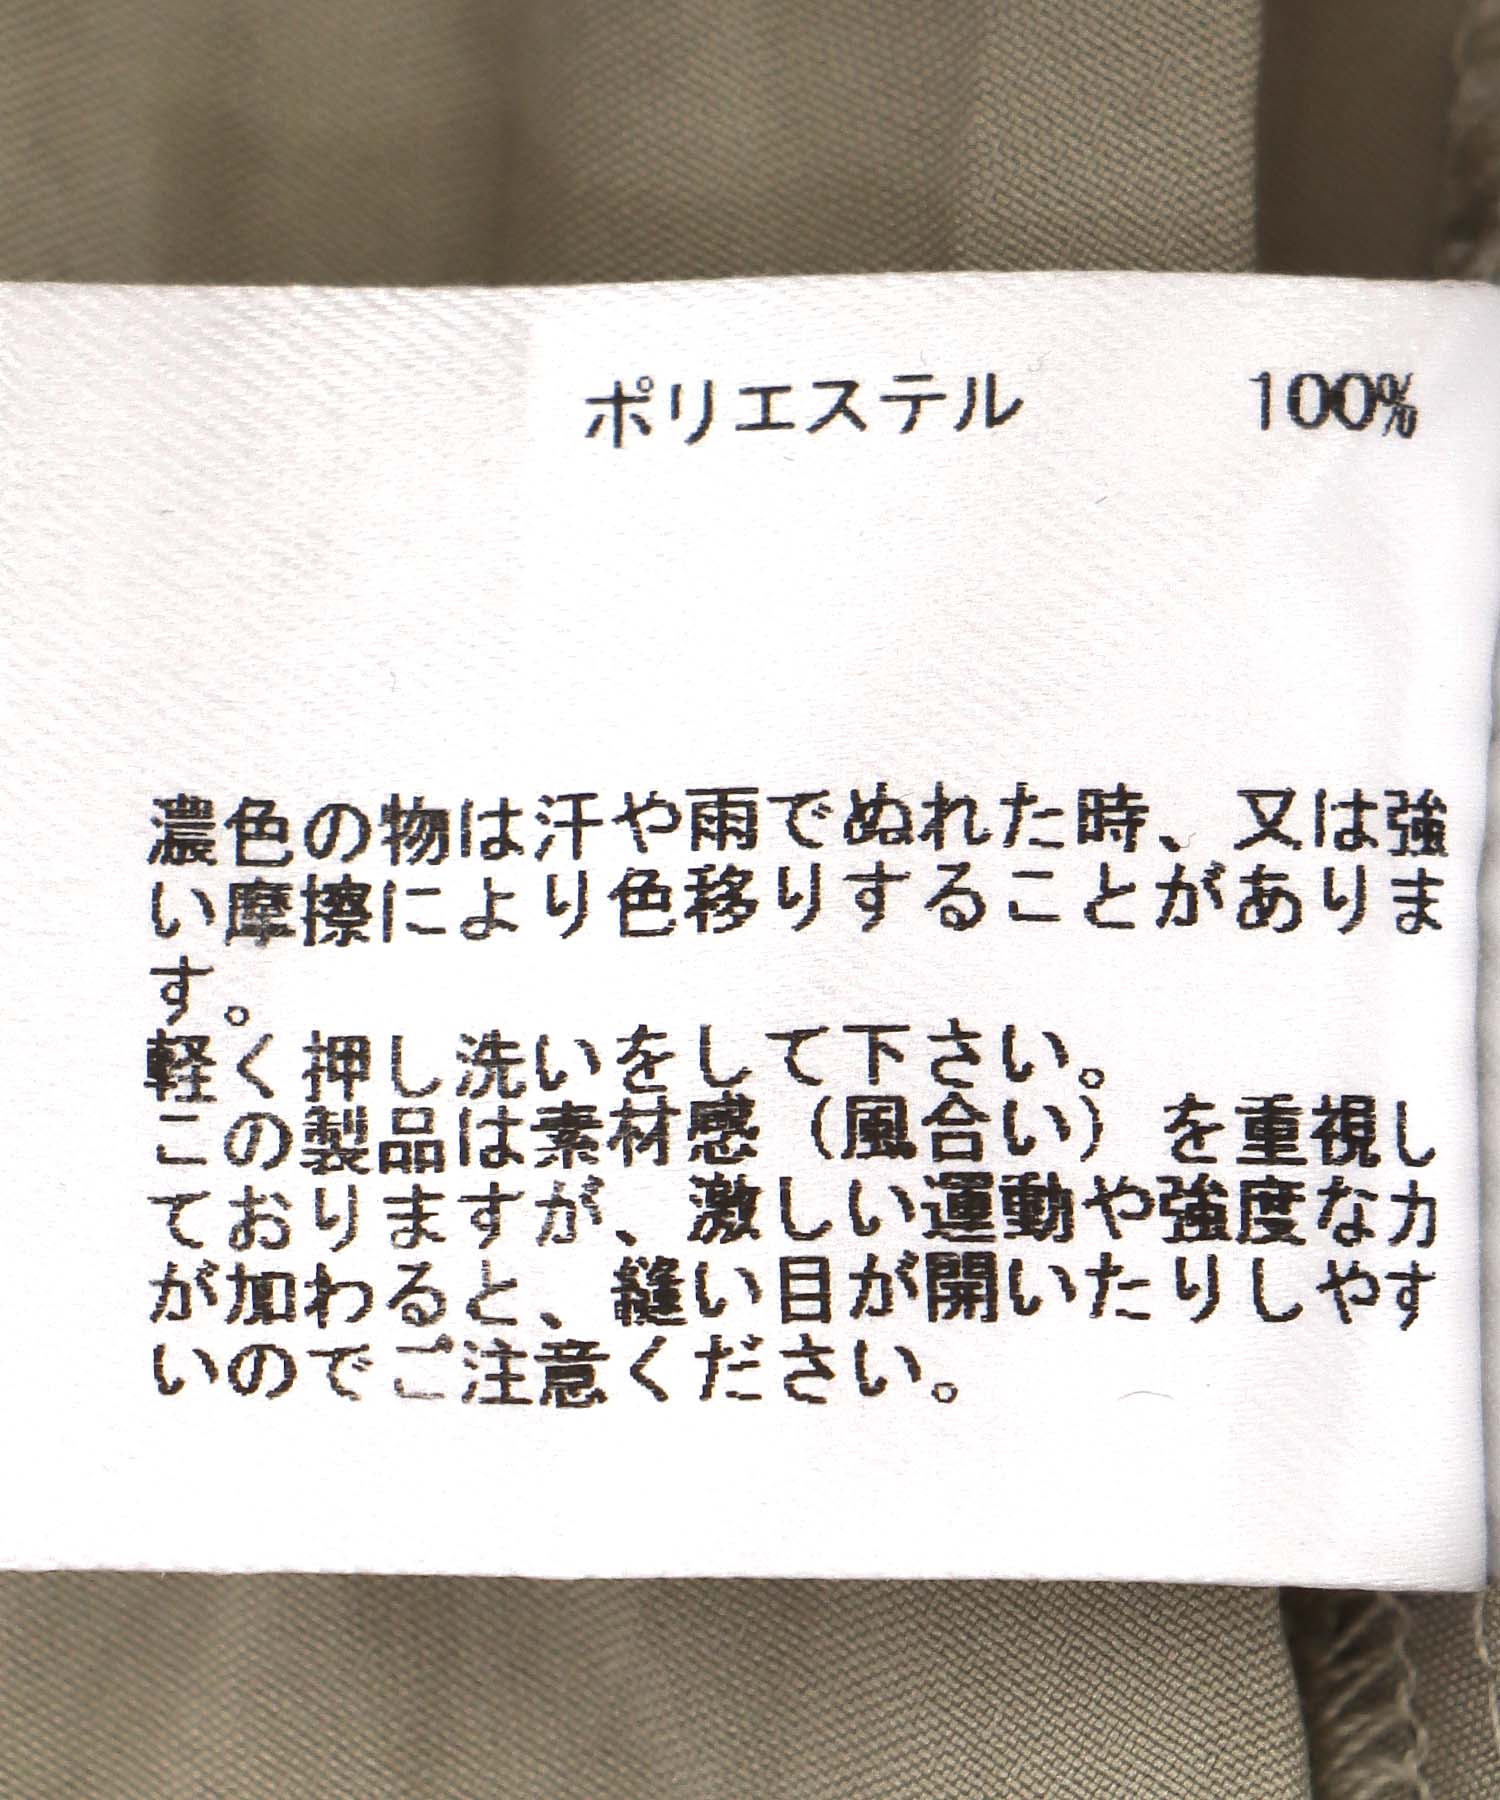 ポリエステル 100%
濃色の物は汗や雨でぬれた時、又は強
い摩擦により色移りすることがありま
す。
軽く押し洗いをして下さい。
この製品は素材感（風合い）を重視し
ておりますが、激しい運動や強度な力
が加わると、縫い目が開いたりしやす
いのでご注意ください。